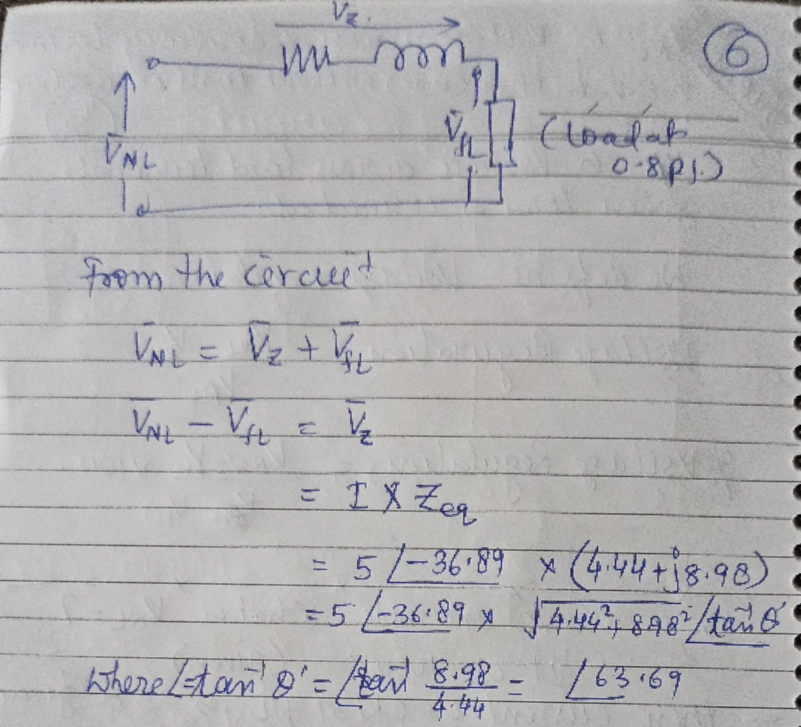 V̅z.
6
V̅NL
V̅fL
(Load at
0.8 Pf.)
From the circuit
V̅NL = V̅z + V̅fL
V̅NL − V̅fL = V̅z
= I × Zeq
= 5 ∠-36.89 × (4.44+j8.98)
= 5 ∠-36.89 × √4.44²+898² ∠tan⁻¹θ'
where ∠tan⁻¹ θ' = ∠tan⁻¹ 8.98/4.44 = ∠63.69